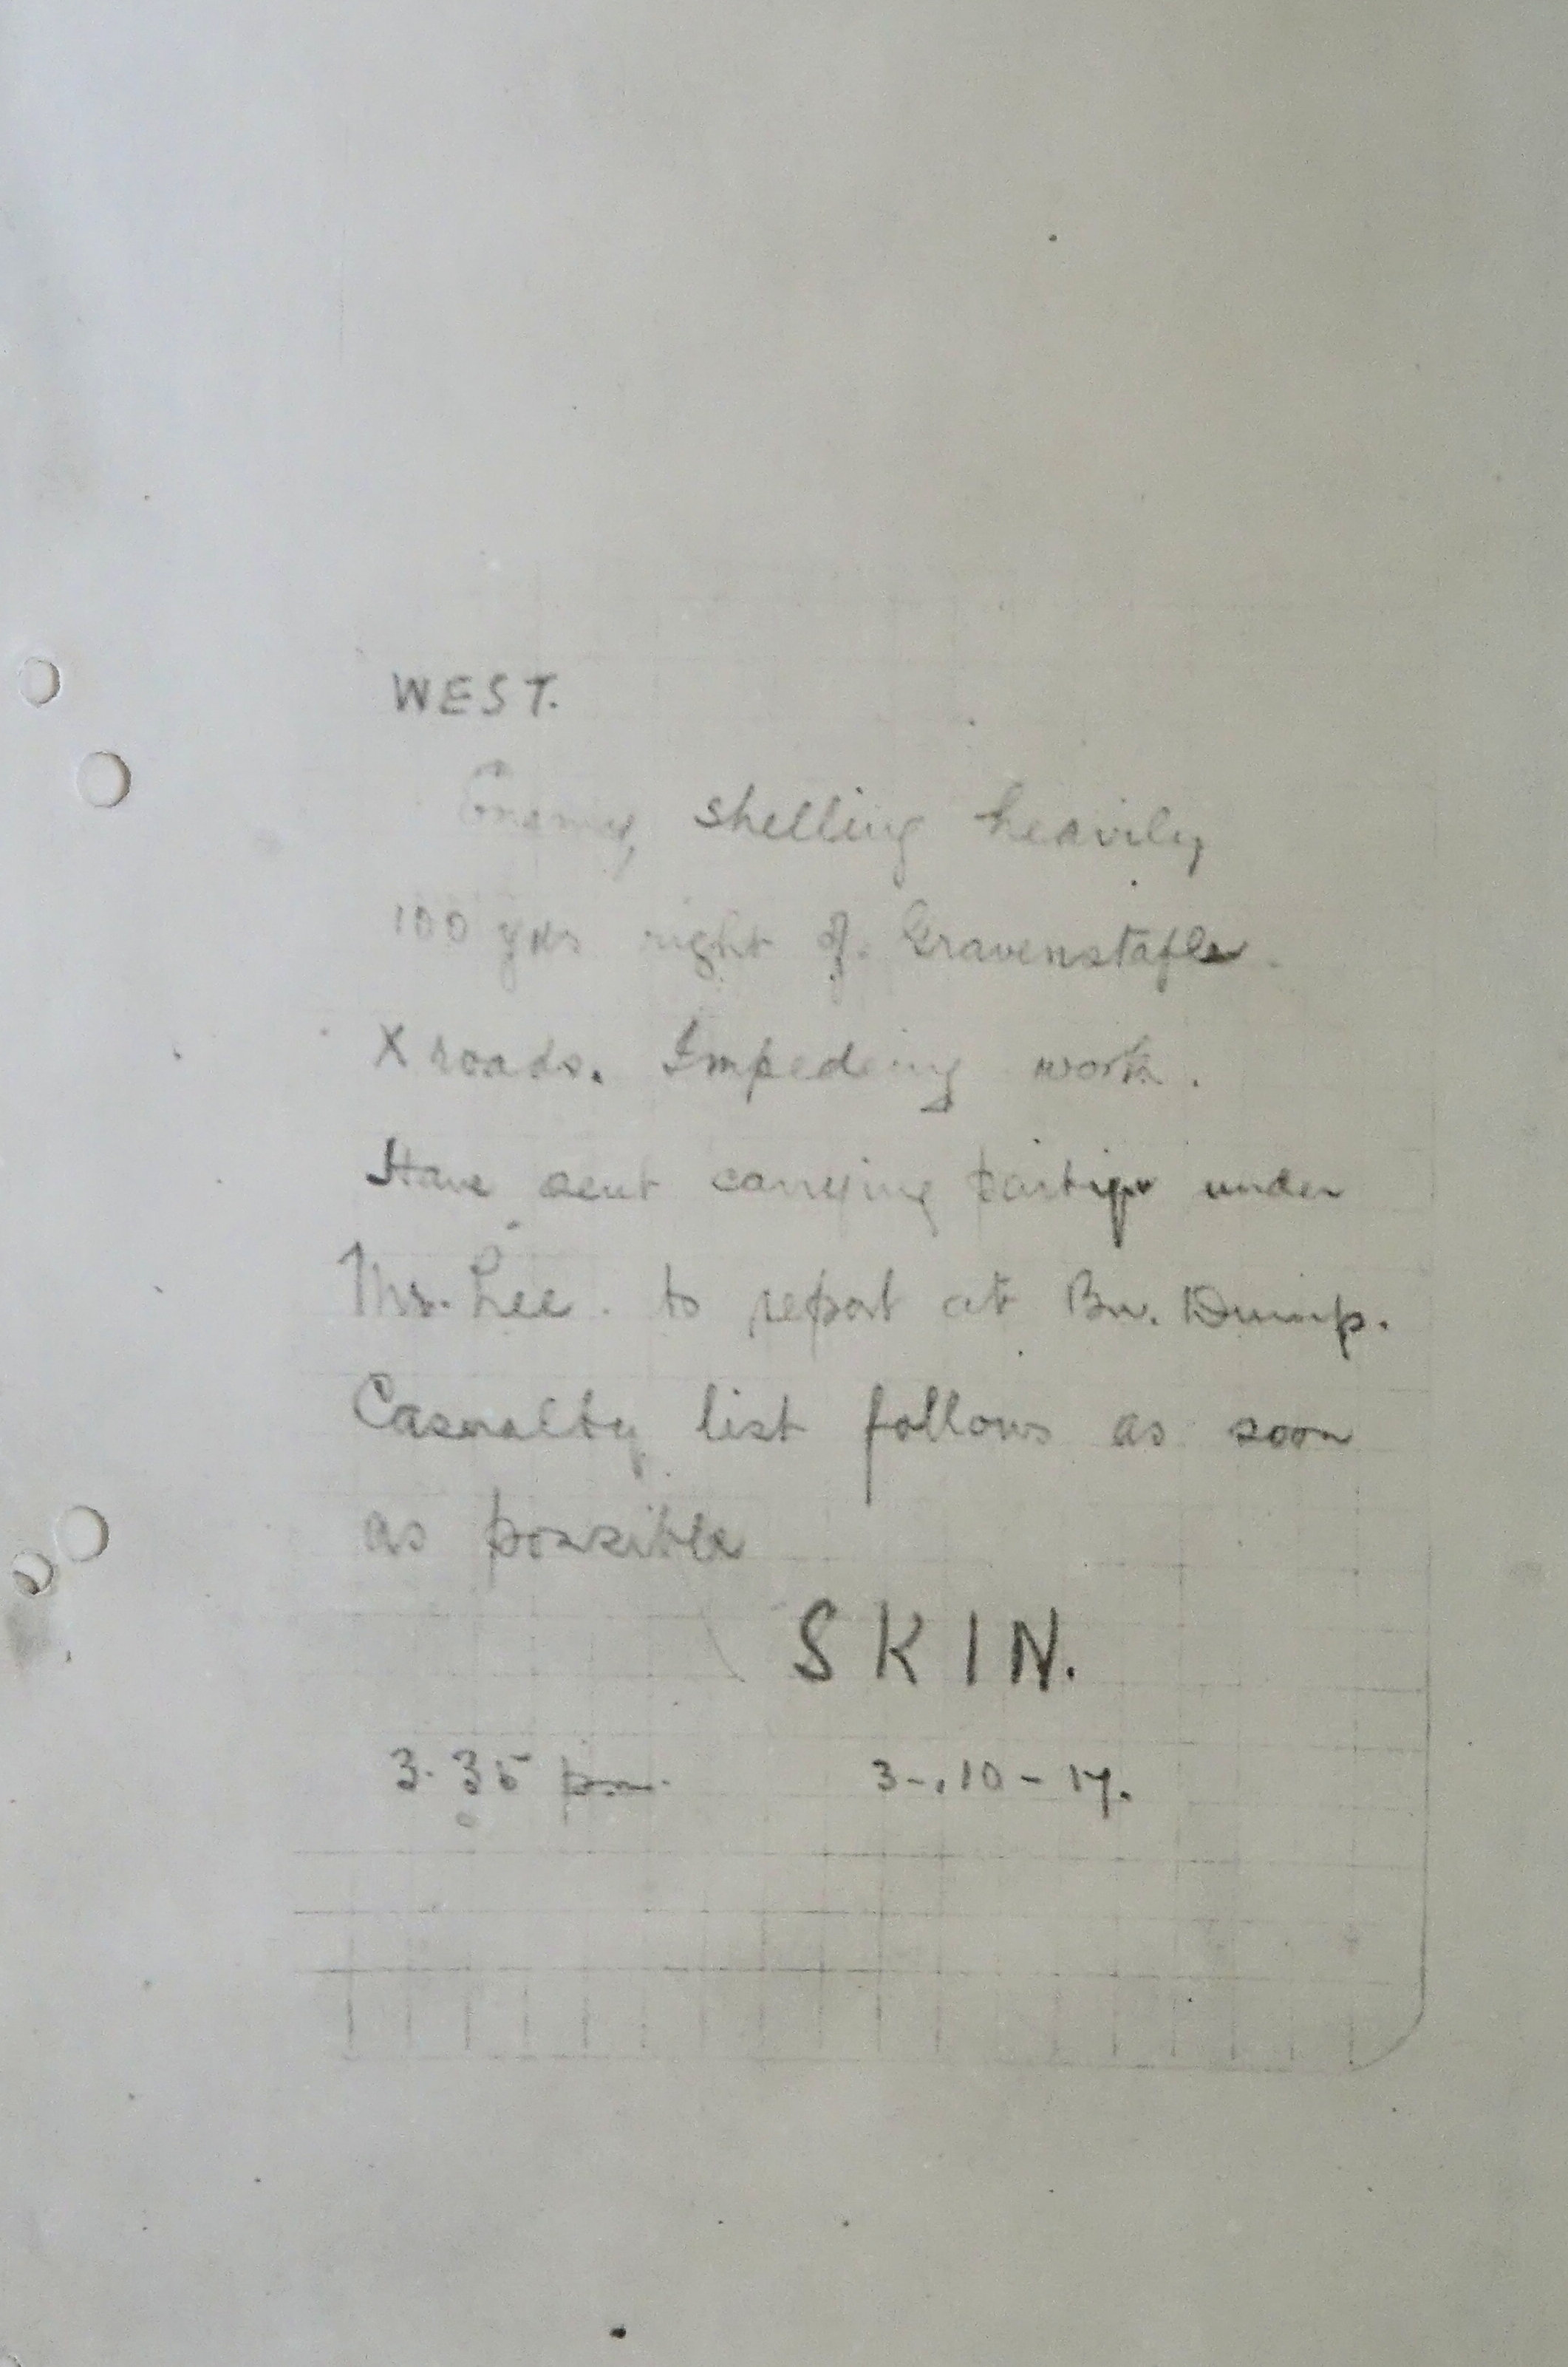 WEST.
Enemy shelling heavily
100 yds right of Gravenstafle.
X roads. Impedeing work.
Have sent carrying party under
Mr. Lee. to report at Bn. Dump.
Casualty list follows as soon
as possible
SKIN.
3.35 pm. 3-10-17.